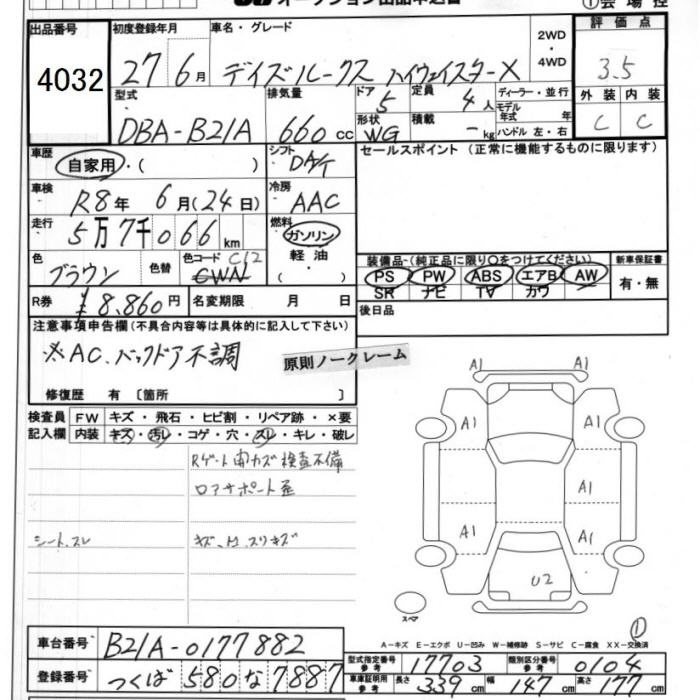 オークション出品申込書 ①会場控
出品番号 初度登録年月 車名・グレード 2WD・4WD 評価点
4032 27年6月 デイズルークス ハイウェイスターX 3.5
型式 排気量 ドア 定員 ディーラー・並行 外装 内装
DBA-B21A 660cc 5 4人 モデル年式 年 C C
形状 積載 ハンドル 左・右
WG -kg
車歴 自家用・( ) シフト セールスポイント (正常に機能するものに限ります)
車検 R8年 6月(24日) 冷房 AAC
走行 5万7千066km 燃料 ガソリン・軽油・( )
色 ブラウン 色替 色コード C12 CWN
装備品-(純正品に限り○をつけてください) 新車保証書
PS PW ABS エアB AW 有・無
SR ナビ TV カワ
R券 ¥8,860円 名変期限 月 日 後日品
注意事項申告欄(不具合内容等は具体的に記入して下さい)
※AC、バックドア不調
原則ノークレーム
修復歴 有〔箇所 〕
検査員 FW キズ・飛石・ヒビ割・リペア跡・×要
記入欄 内装 キズ・汚レ・コゲ・穴・スレ・キレ・破レ
Rゲート開カズ検査不備
ロアサポート歪
シート、スレ
A1 A1
A1 A1
A1
A1 A1
U2
スペア
①
A-キズ E-エクボ U-凹み W-補修跡 S-サビ C-腐食 XX-交換済
車台番号 B21A-0177882
型式指定番号 参考 17703 類別区分番号 参考 0104
登録番号 つくば 580 な 7887
車庫証明用 参考 長さ 339cm 幅 147cm 高さ 177cm